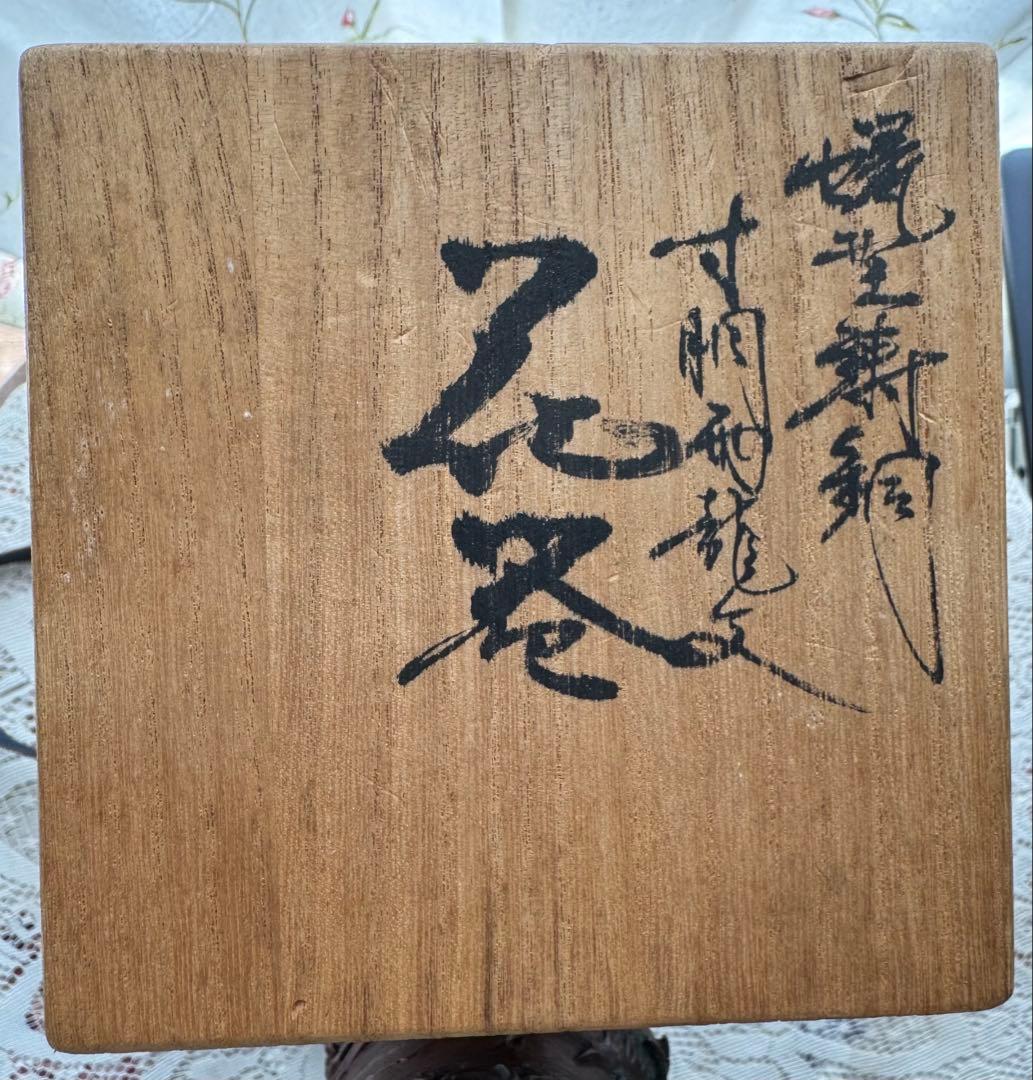 蝋型鋳銅
寸胴形龍文
花器